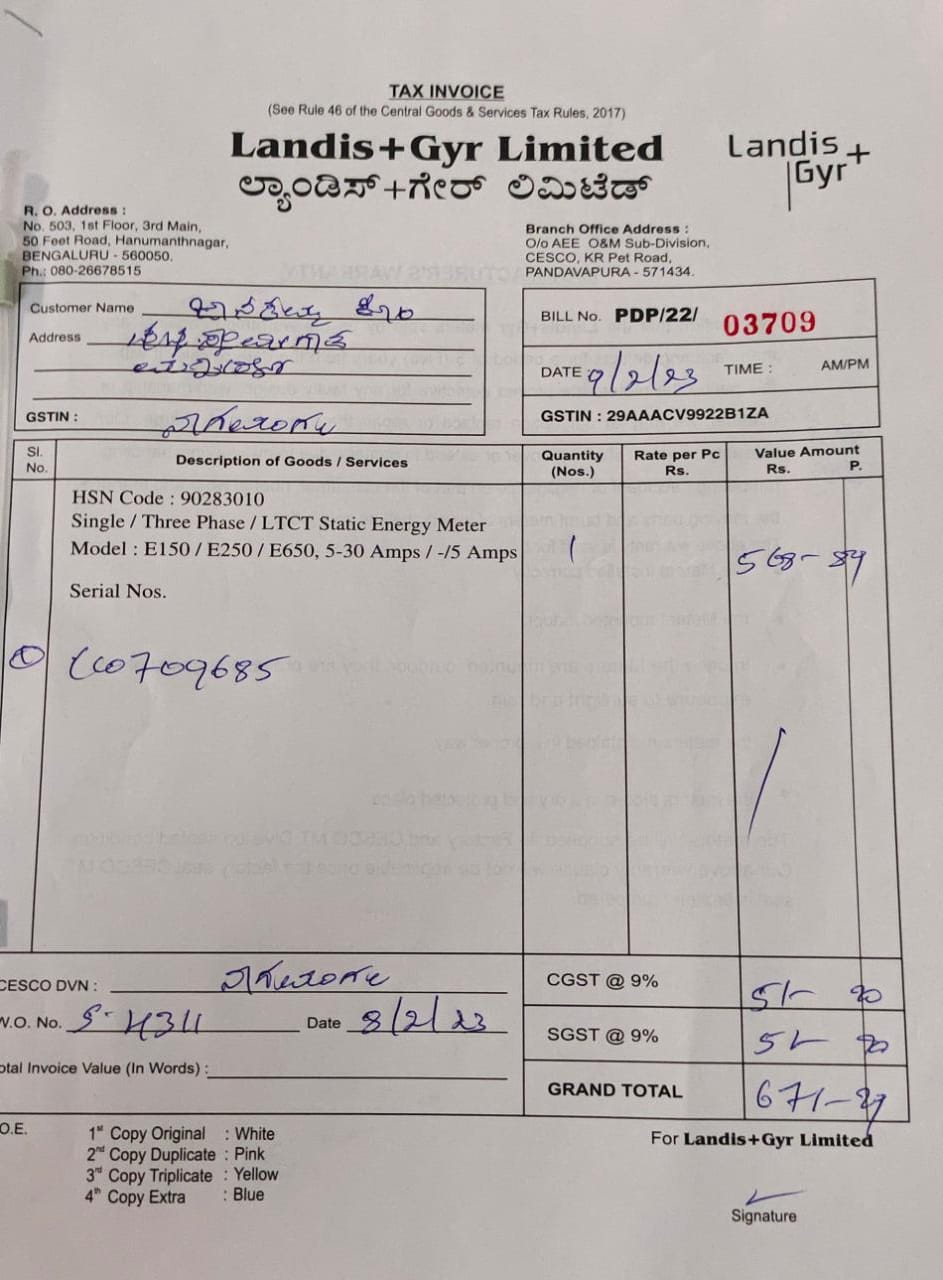 TAX INVOICE
(See Rule 46 of the Central Goods & Services Tax Rules, 2017)
Landis+Gyr Limited
ಲ್ಯಾಂಡಿಸ್+ಗೇರ್ ಲಿಮಿಟೆಡ್
Landis+
Gyr
R. O. Address :
No. 503, 1st Floor, 3rd Main,
50 Feet Road, Hanumanthnagar,
BENGALURU - 560050.
Ph.: 080-26678515
Branch Office Address :
O/o AEE O&M Sub-Division,
CESCO, KR Pet Road,
PANDAVAPURA - 571434.
Customer Name
Address
GSTIN :
BILL No. PDP/22/ 03709
DATE 9/2/23 TIME : AM/PM
GSTIN : 29AAACV9922B1ZA
Sl. No. Description of Goods / Services Quantity (Nos.) Rate per Pc Rs. Value Amount Rs. P.
HSN Code : 90283010
Single / Three Phase / LTCT Static Energy Meter
Model : E150 / E250 / E650, 5-30 Amps / -/5 Amps 1 568-89
Serial Nos.
709685
CESCO DVN :
W.O. No. 4311 Date 8/2/23
CGST @ 9% 51- 20
SGST @ 9% 51- 20
otal Invoice Value (In Words) :
GRAND TOTAL 671-29
O.E.
1st Copy Original : White
2nd Copy Duplicate : Pink
3rd Copy Triplicate : Yellow
4th Copy Extra : Blue
For Landis+Gyr Limited
Signature